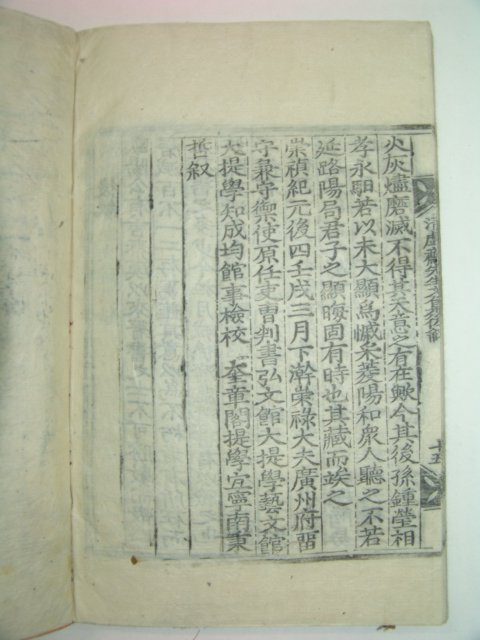 火灰燼磨滅不得其天意之有在歟今其後孫鍾瑩相
孝永駰若以未大顯爲慽采菱陽和衆人聽之不若
延路陽局君子之顯晦固有時也其藏而竢之
崇禎紀元後四壬戌三月下澣崇祿大夫廣州府留
守兼守禦使原任吏曹判書弘文館大提學藝文館
大提學知成均館事檢校 奎章閣提學宜寧南秉
哲叙
先生
十五